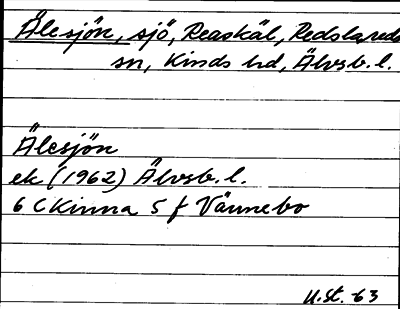 Älesjön, sjö, Reaskäl, Redslareds
sn, Kinds hd, Älvsb. l.
Älesjön
ek (1962) Älvsb. l.
6 C Kinna 5 f Vännebo
U.st. 63